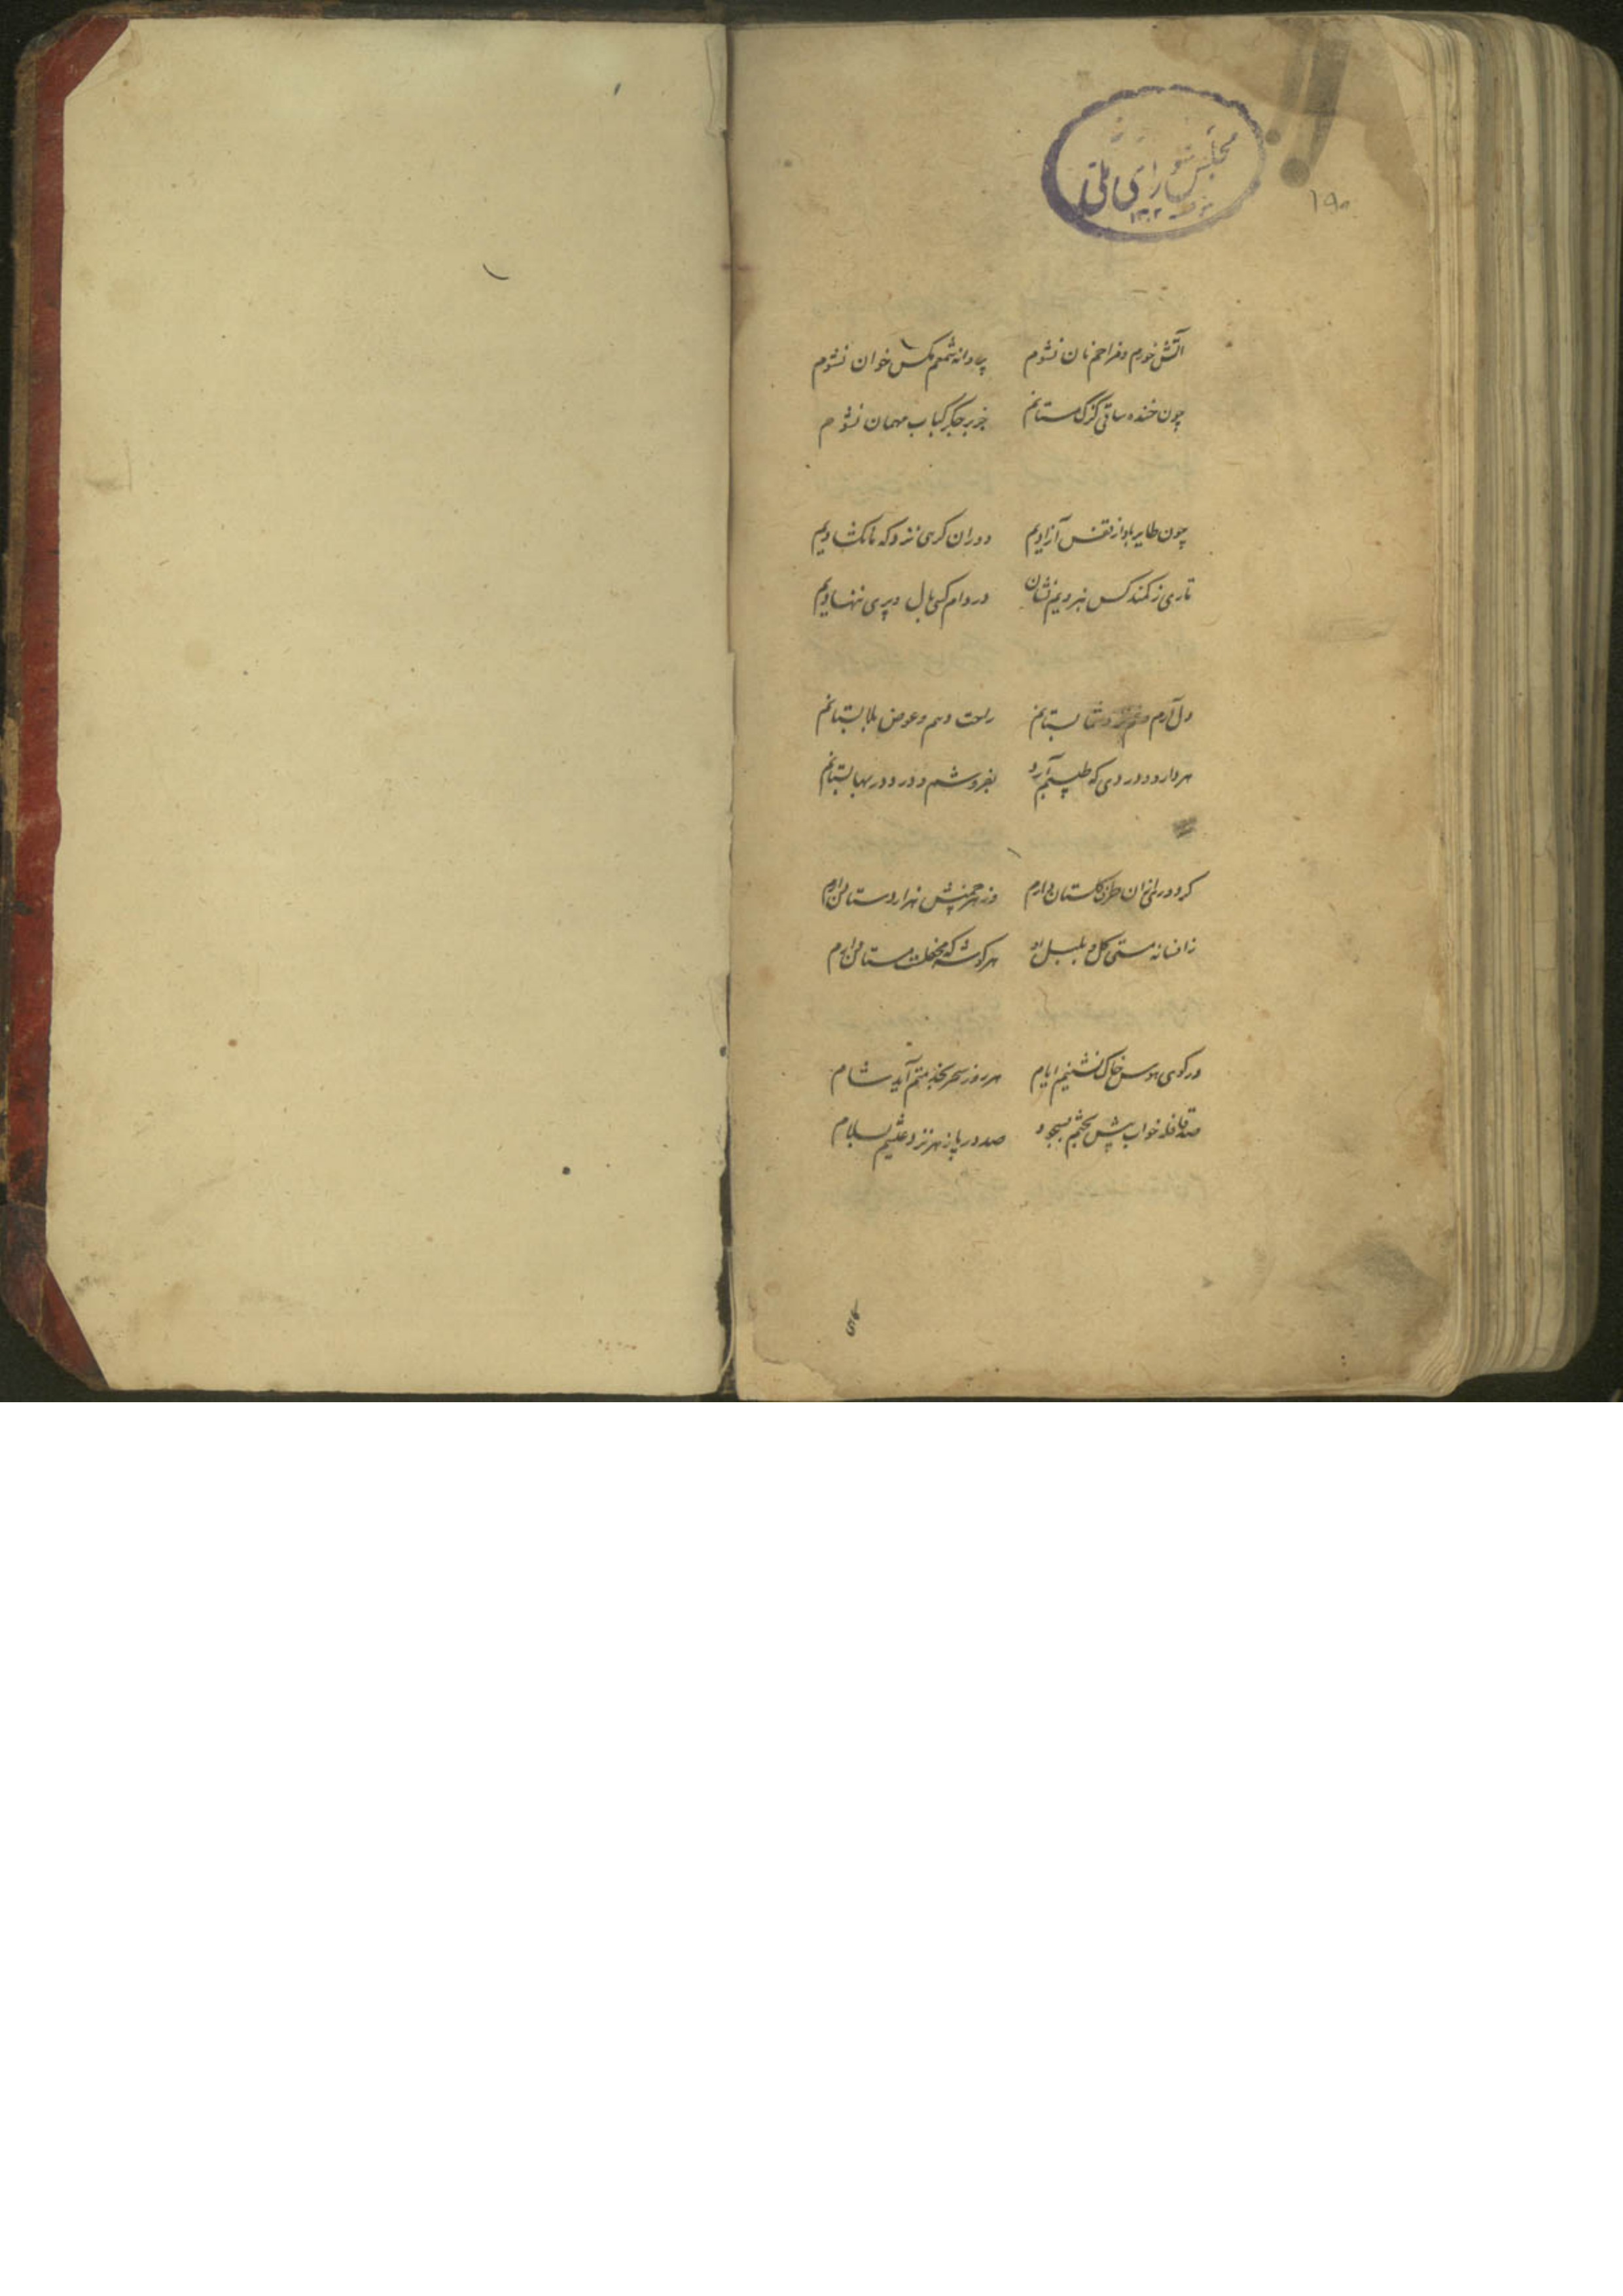 مجلس شورای ملی
۱۳۰۲
۱۹۵
آتش خورم و مزاحم نان نشوم پروانه شمعم مکس خوان نشوم
چون خنده ساقی کزک مستانم جز بر جکر کباب مهمان نشوم
چون طایر باد از قفس آزادیم دوران کرهی نزد که ما نکشادیم
تاری ز کمند کس نبردیم نشان در دام کسی بال و پری ننهادیم
دل آرم و بستانم راحت دهم و عوض بلا بستانم
هر دارو و دردی که طبیبم آرد بفروشم و درد در بها بستانم
طرف کلستان دارم هزار دستان دارم
ز افسانه مستی کل و بلبل او هر کوشه که مستان دارم
در کوی هوس خاک نشینم ایام هر روز سحر بخدمتم آید شام
صد قافله خواب پیش چشمم بسجود صد در یا زهر نزد عیشم بسلام